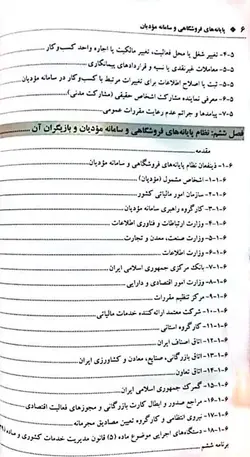 ۶ ◆ پایانه‌های فروشگاهی و سامانه مؤدیان
۵-۴- تغییر شغل یا محل فعالیت، تغییر مالکیت یا اجاره واحد کسب‌وکار
۵-۵- معاملات غیرنقدی یا نسیه و قراردادهای پیمانکاری
۵-۶- ثبت یا اصلاح اطلاعات برای تغییرات مرتبط با کسب‌وکار در سامانه مؤدیان
۵-۶- معرفی نماینده مشارکت اشخاص حقیقی (مشارکت مدنی)
۵-۷- پیامدها و جرائم عدم رعایت مقررات عمومی
فصل ششم: نظام پایانه‌های فروشگاهی و سامانه مؤدیان و بازیگران آن
مقدمه
۶-۱- ذینفعان نظام پایانه‌های فروشگاهی و سامانه مؤدیان
۶-۱-۱- اشخاص مشمول (مؤدیان)
۶-۱-۲- سازمان امور مالیاتی کشور
۶-۱-۳- کارگروه راهبری سامانه مؤدیان
۶-۱-۴- وزارت ارتباطات و فناوری اطلاعات
۶-۱-۵- وزارت صنعت، معدن و تجارت
۶-۱-۶- وزارت اطلاعات
۶-۱-۷- بانک مرکزی جمهوری اسلامی ایران
۶-۱-۸- وزارت امور اقتصادی و دارایی
۶-۱-۹- مرکز تنظیم مقررات
۶-۱-۱۰- شرکت معتمد ارائه‌کننده خدمات مالیاتی
۶-۱-۱۱- کارگروه استانی
۶-۱-۱۲- اتاق اصناف ایران
۶-۱-۱۳- اتاق بازرگانی، صنایع، معادن و کشاورزی ایران
۶-۱-۱۴- اتاق تعاون
۶-۱-۱۵- گمرک جمهوری اسلامی ایران
۶-۱-۱۶- مراجع صدور و ابطال کارت بازرگانی و مجوزهای فعالیت اقتصادی
۶-۱-۱۷- نیروی انتظامی و کارگروه تعیین مصادیق مجرمانه
۶-۱-۱۸- دستگاه‌های اجرایی موضوع ماده (۵) قانون مدیریت خدمات کشوری و ماده (۲۹
برنامه ششم